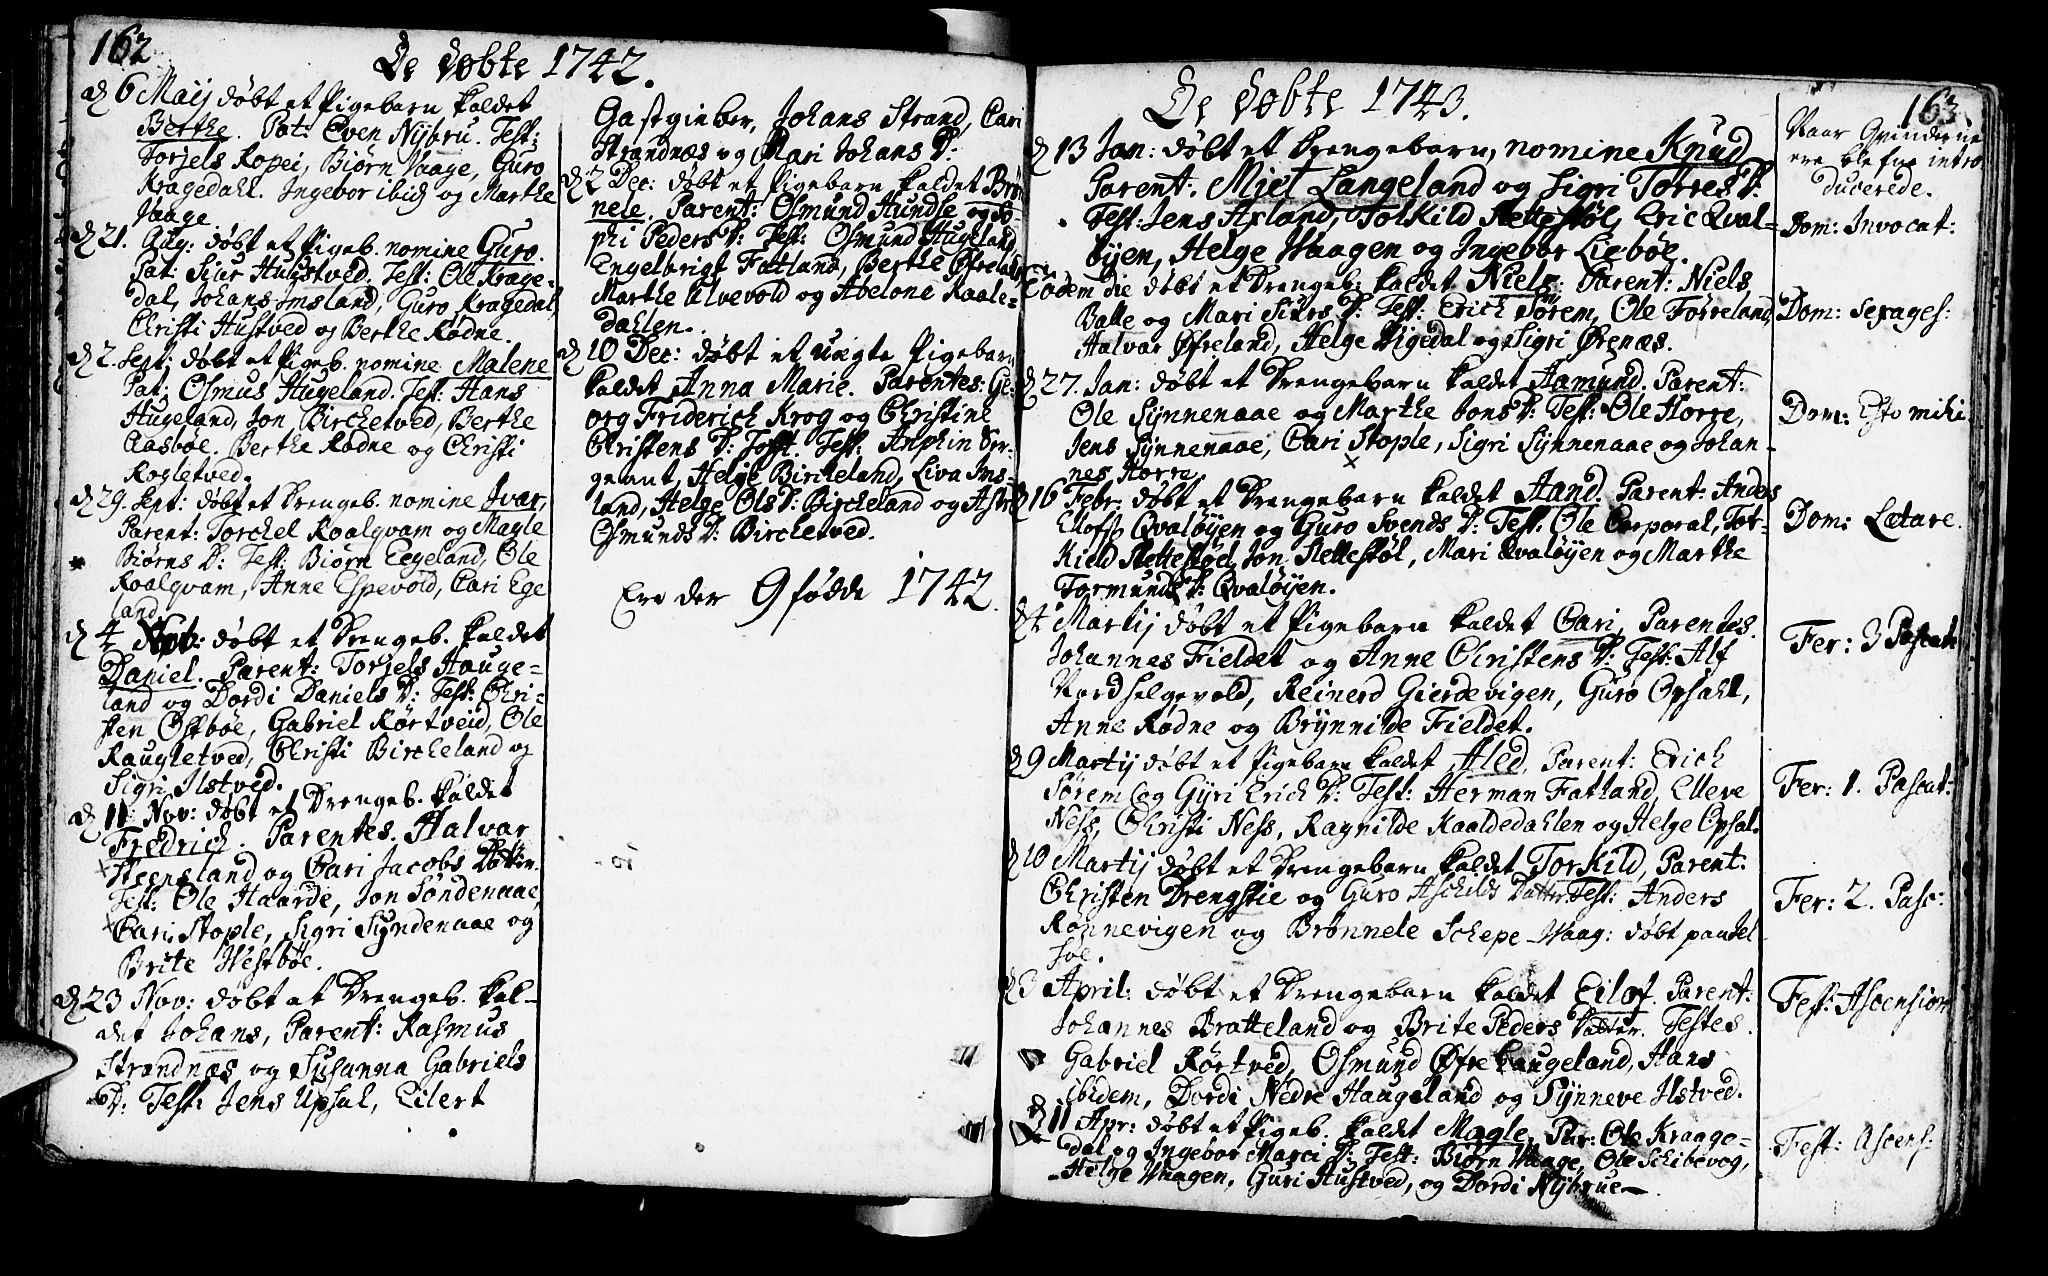 162
De døbte 1742.
d 6 Maij døbt et Pigebarn kaldet
Berthe. Pat: Even Nijbru. Test:
Torjels Ropei, Biørn Vaage, Guro
Kragedahl. Ingebor ibid og Marthe
Vaage
d 21. Aug: døbt et Pigeb. nomine Guro.
Pat: Siur Hustved. Test: Ole Krage-
dal, Johans Imsland, Guro Kragedal,
Christi Hustved og Berthe Rødne.
d 2. Sept: døbt et Pigeb. nomine Malene
Pat: Osmus Hugeland. Test: Hans
Hugeland, Jon Birchetved, Berthe
Aasbøe. Berthe Rødne og Christi
Rogletved.
d 29. Sept: døbt et Drengeb. nomine Ivar,
Parent: Torchel Roalqvam og Magle
Biørns D: Test: Biørn Eegeland, Ole
Roalqvam, Anne Espevold, Cari Ege
land
d 4 døbt et Drengeb. kaldet
Daniel. Parent: Torjels Hauge-
land og Dordi Daniels D: Test: Chri-
sten Østbøe, Gabriel Rørtveid, Ole
Raugletved, Christi Bircheland og
Sigri Ilstved.
d 11 Nov: døbt et Drengeb. kaldet
Fredrich. Parentes. Halvar
Steensland og Cari Jacobs Datter.
Test: Ole Haarde, Jon Søndenaae,
Cari Stople, Sigri Syndenaae og
Brite Westbøe.
d 23 Nov: døbt et Drengeb. kal-
det Johans, Parent: Rasmus
Strandnæs og Susanna Gabriels
D: Test: Jens Upsal, Eilert
Gastgieber, Johans Strand, Cari
Strandnæs og Mari Johans D:
d 2 Dec: døbt et Pigebarn kaldet Brøn
nele. Parent: Osmund Hundse og So
phi Peders D: Test: Osmund Hugeland,
Engelbrigt Fatland, Berthe Øfreland,
Marthe Alvevold og Abelone Kaale-
dahlen.
d 10 Dec: døbt et uægte Pigebarn
kaldet Anna Marie. Parentes: Ge-
org Friderich Krog og Christine
Christens D: Tofft. Test: Anphin Ser-
geant, Helge Bircheland, Liva Ims-
land, Helge Ols D: Bircheland og Astri
Osmunds D: Birchetved.
Ere der 9 fødde 1742.
De døbte 1743.
163.
d 13 Jan: døbt et Drengebarn, nomine Knud
Parent. Miel Langeland og Sigri Torres D:
Test: Jens Axland, Tolkild Nettestøl, Eric Qval-
øyen, Helge Waagen og Ingebor Liebøe.
Eodem die døbt et Drengeb: kaldet Niels: Parent: Niels
Batte og Mari Siurs D: Test: Erich Sørem, Ole Førreland,
Halvar Øfreland, Helge Vigedal og Sigri Ørenæs.
d 27. Jan: døbt et Drengebarn kaldet Aamund. Parent:
Ole Synnenaae og Marthe Jons D: Test: Ole Horre,
Jens Synnenaae, Cari Stople, Sigri Synnenaae og Johan-
nes Horre
d 16 Febr: døbt et Drengebarn kaldet Aand. Parent: Anders
Elofs Qvaløyen og Guro Svends D: Test: Ole Corporal, Tor-
kield Nettestøel, Jon Nettestøl, Mari Qvaløyen og Marthe
Tormunds D: Qvaløyen.
d 4 Martij døbt et Pigebarn kaldet Cari, Parentes.
Johannes Fieldet og Anne Christens D: Test: Alf
Nordselgevold, Reinerd Gierdevigen, Guro Opsahl,
Anne Rødne og Brynnilde Fieldet.
d 9 Martij døbt et Pigebarn kaldet Aled. Parent: Erich
Sørem og Gyri Erich D: Test: Herman Fatland, Elleve
Ness, Christi Ness, Ragnilde Kaaldedahlen og Helge Opsal.
d 10 Martij døbt et Drengebarn kaldet Torkild, Parent:
Christen Drengstie og Guro Aschilds Datter Test: Anders
Rønnevigen og Brønnele Schepe-Waag: døbt paa Jel
søe.
d 3 April: døbt et Drengebarn kaldet Eilof. Parent:
Johannes Bratteland og Brite Peders Datter. Testes.
Gabriel Rørtved, Osmund Øfre Haugeland, Hans
ibidem, Dordi Nedre Haugeland og Synneve Ilstved.
d 11 Apr: døbt et Pigeb. kaldt Magle, Par: Ole Kraage-
dal og Ingebor Marci D: Test: Biørn Waage, Ole Schibevog,
Helge Waagen, Guri Hustved, og Dordi Nybrue.
Naar Qvinderne
ere blefne intro
ducerede.
Dom: Invocat:
Dom: Sexages:
Dom: Esto mihi
Dom: Lætare.
Fer: 3 Paschat:
Fer: 1. Pascat:
Fer: 2. Pasc:
Fest: Ascension
Fest: Ascens: